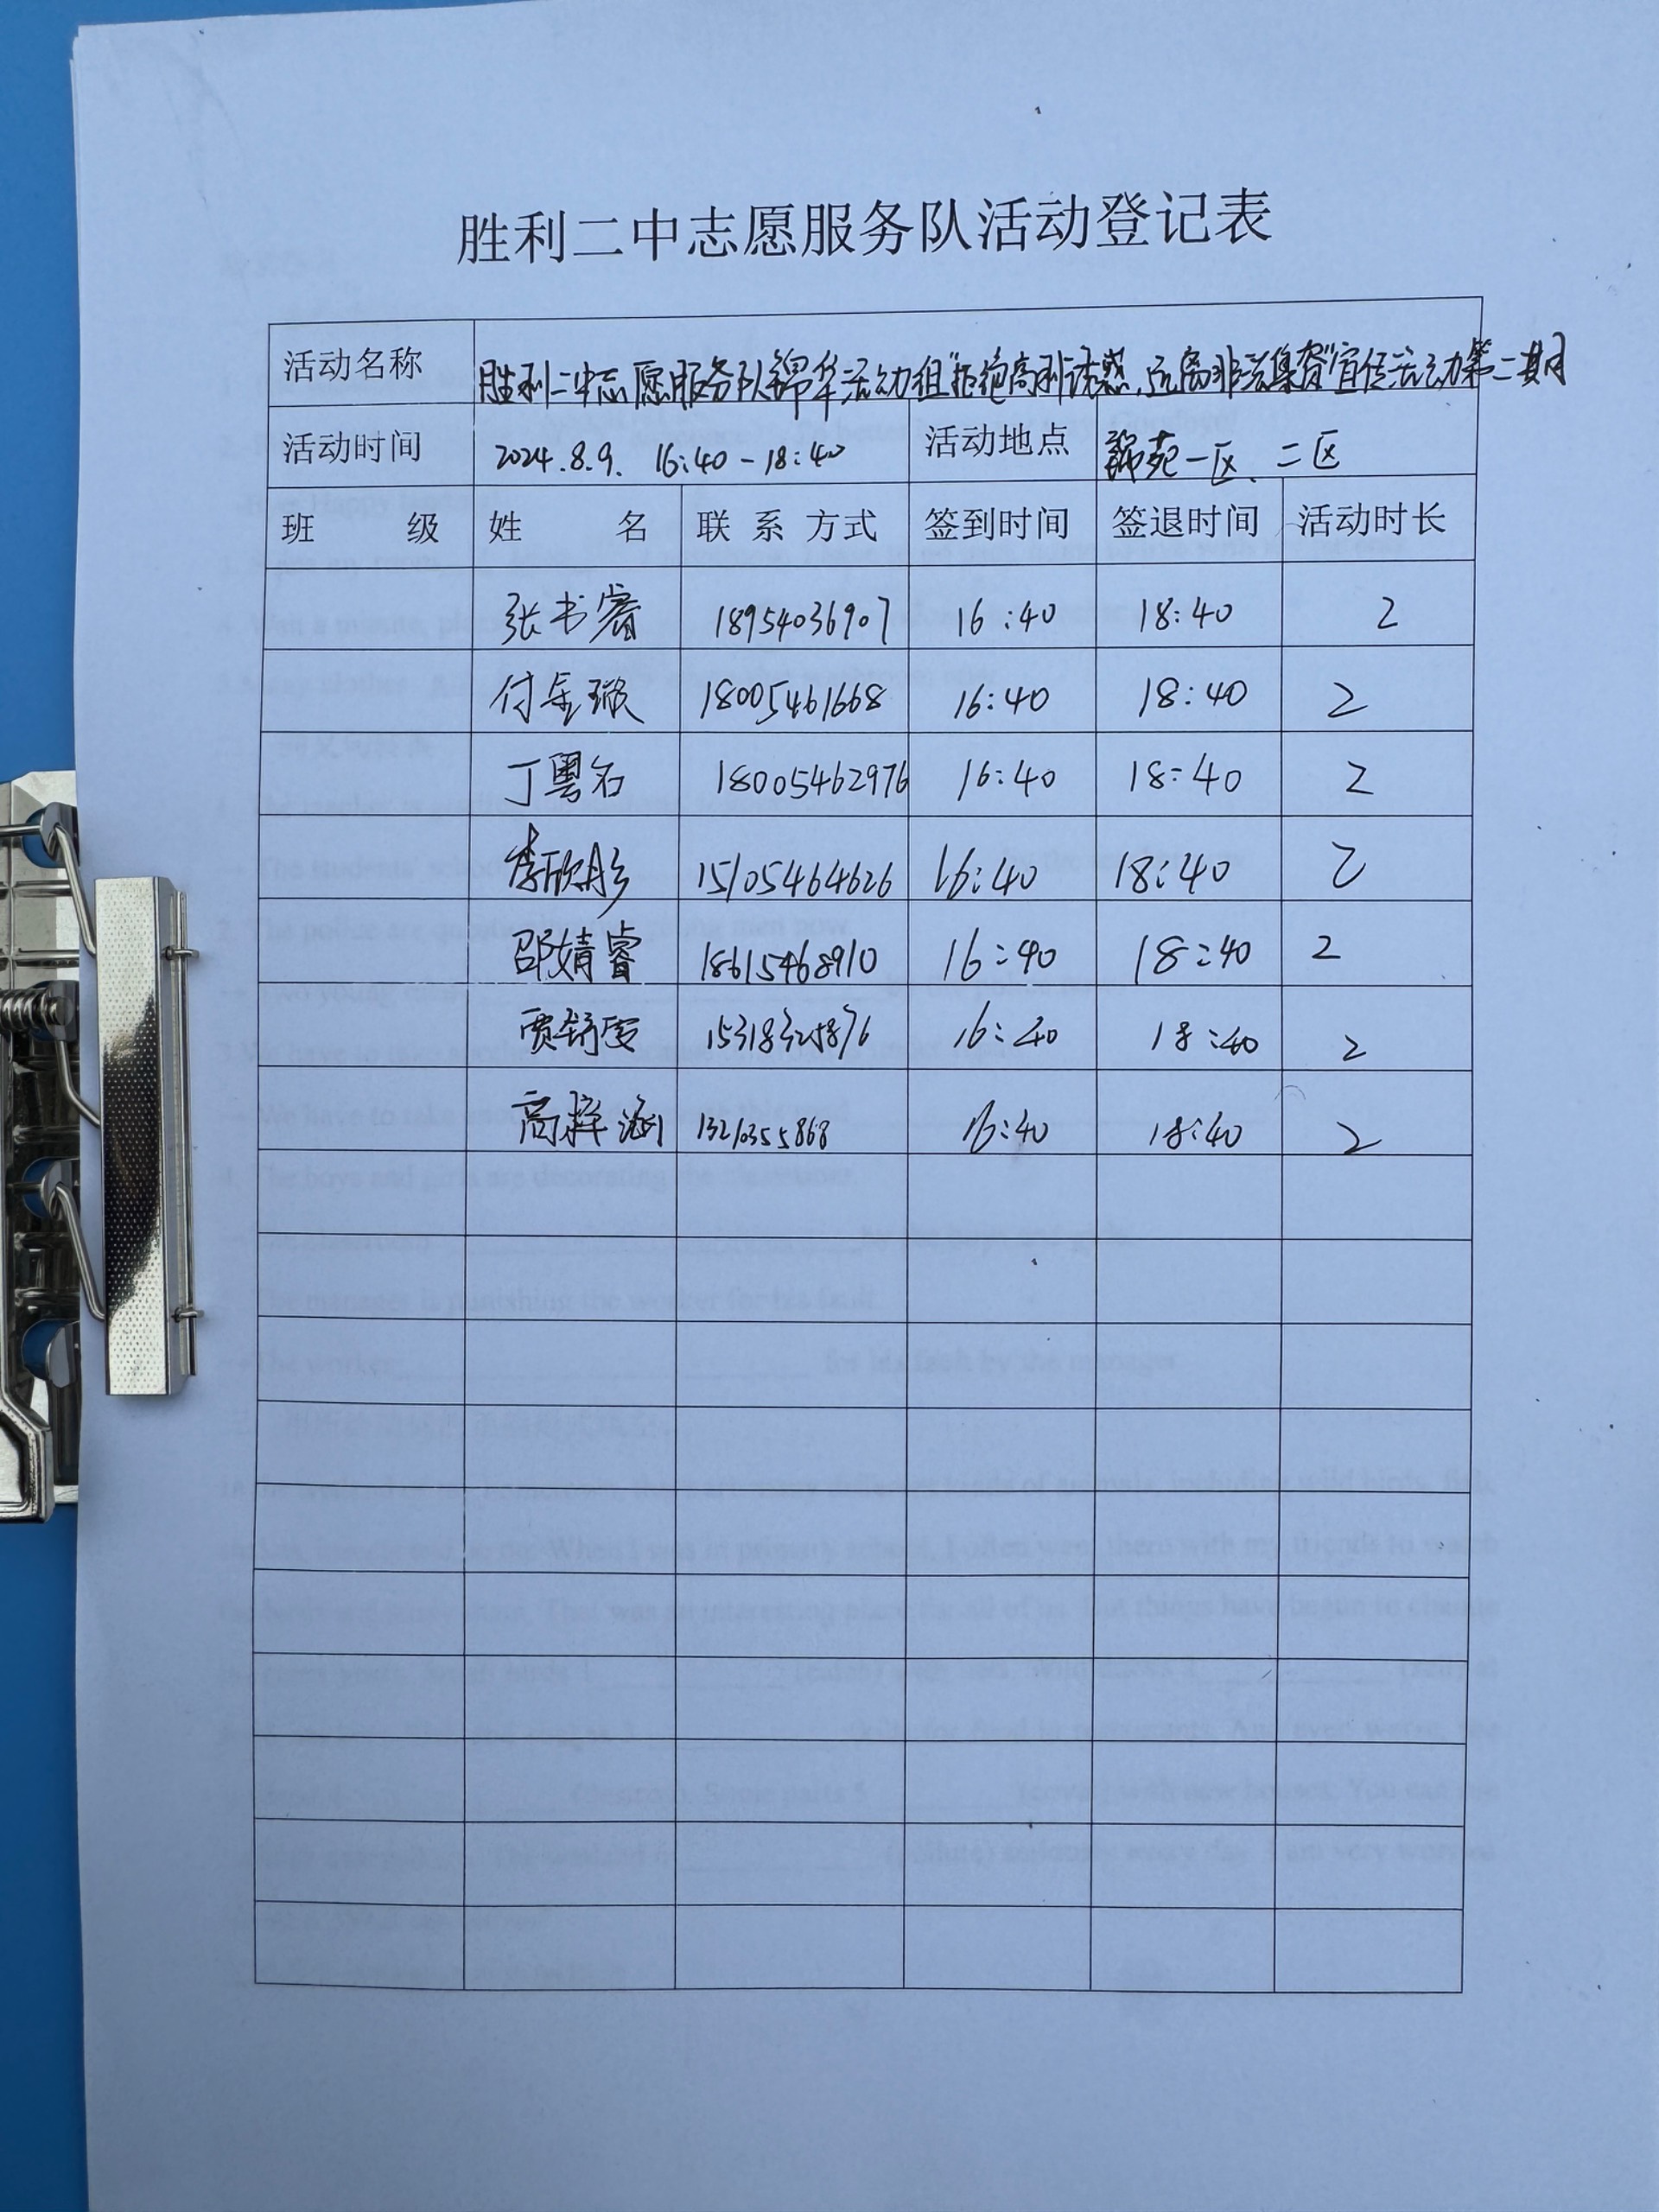 胜利二中志愿服务队活动登记表
活动名称 胜利二中志愿服务队锦华活动组"拒绝高利诱惑,远离非法集资"宣传活动第二期
活动时间 2024.8.9. 16:40-18:40 活动地点 锦苑一区、二区
班 级 姓 名 联系方式 签到时间 签退时间 活动时长
张书睿 18954036907 16:40 18:40 2
付金璇 18005461668 16:40 18:40 2
丁粤名 18005462976 16:40 18:40 2
李欣彤 15105464626 16:40 18:40 2
邵婧睿 18615468910 16:40 18:40 2
贾舒雯 16:40 18:40 2
高梓涵 16:40 18:40 2